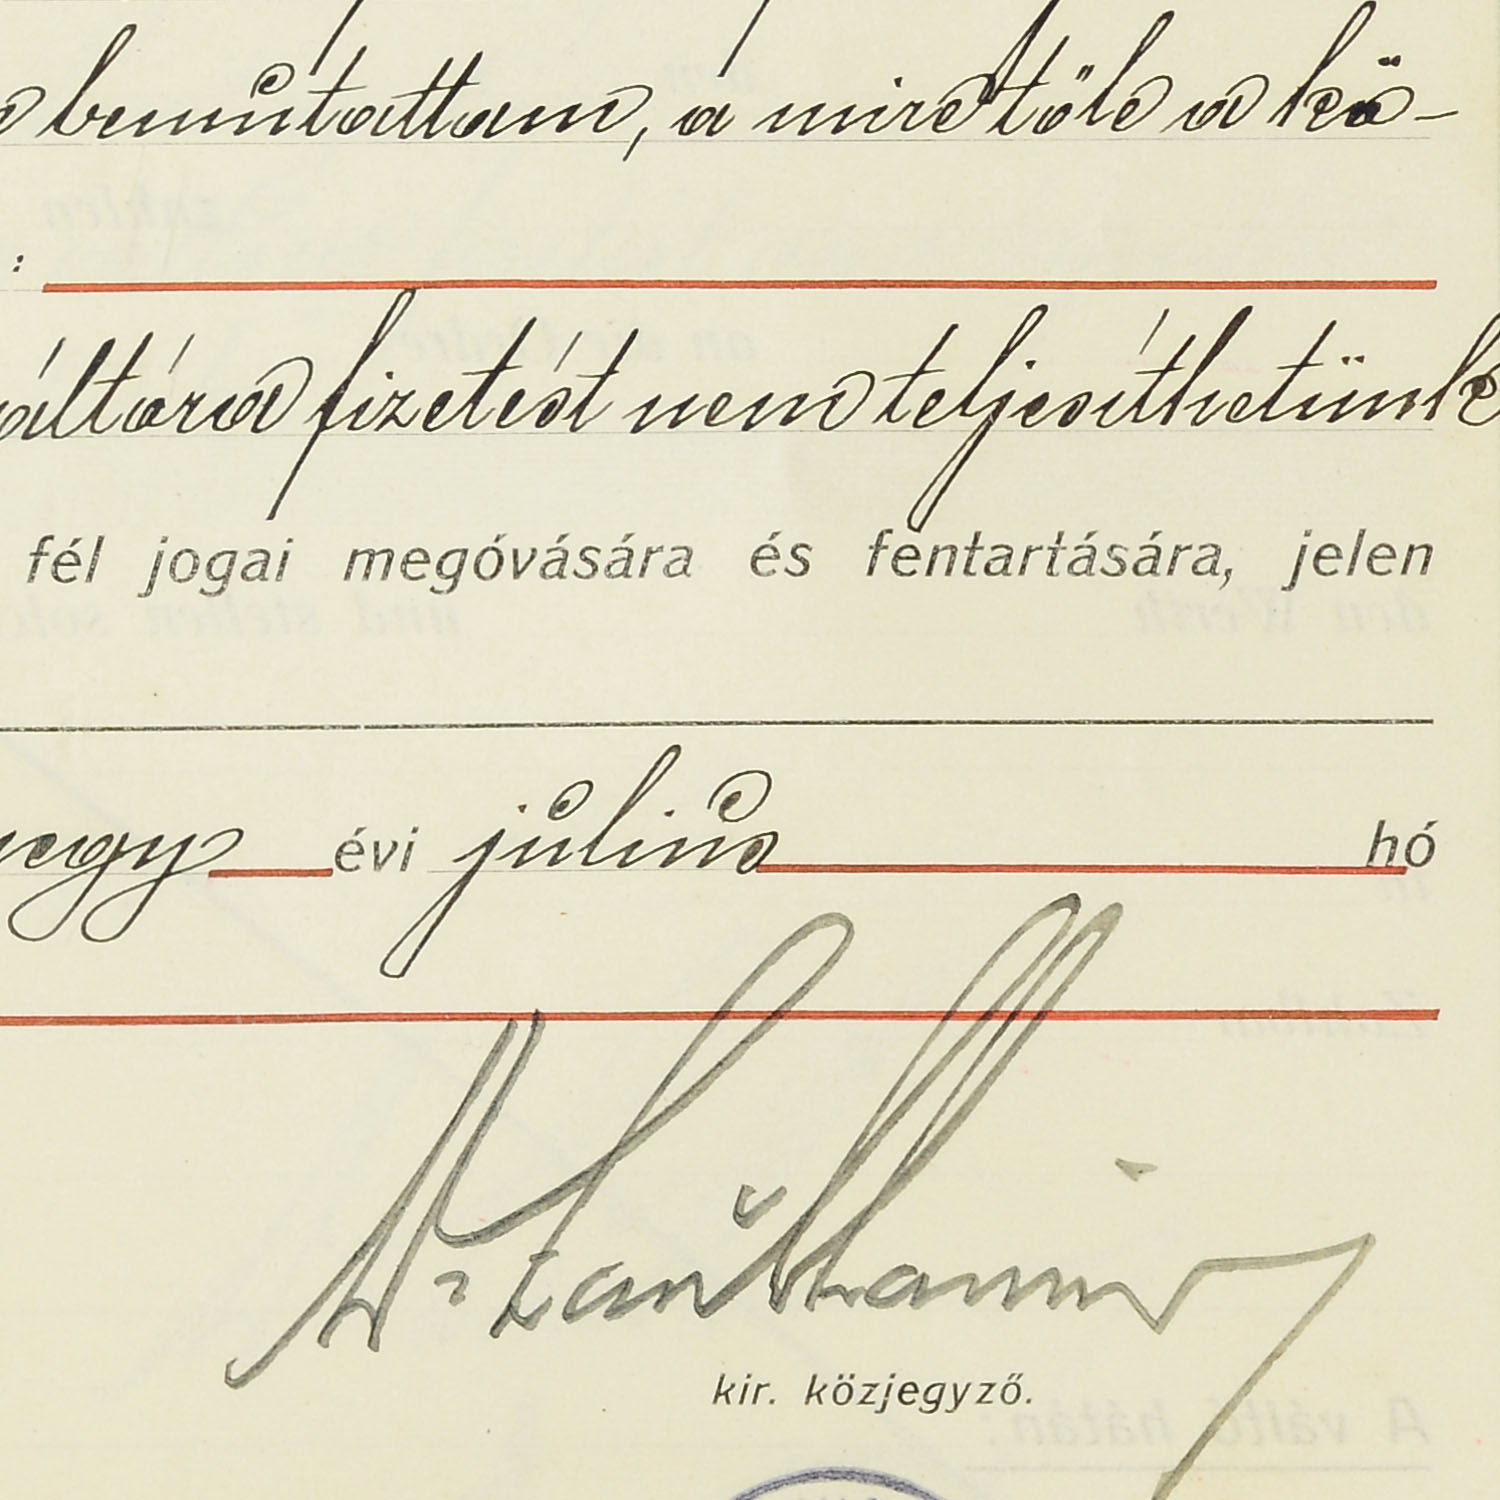 bemutattam, a mire tőle a kö-
:
váltóra fizetést nem teljesíthetünk
fél jogai megóvására és fentartására, jelen
négy évi július hó
kir. közjegyző.